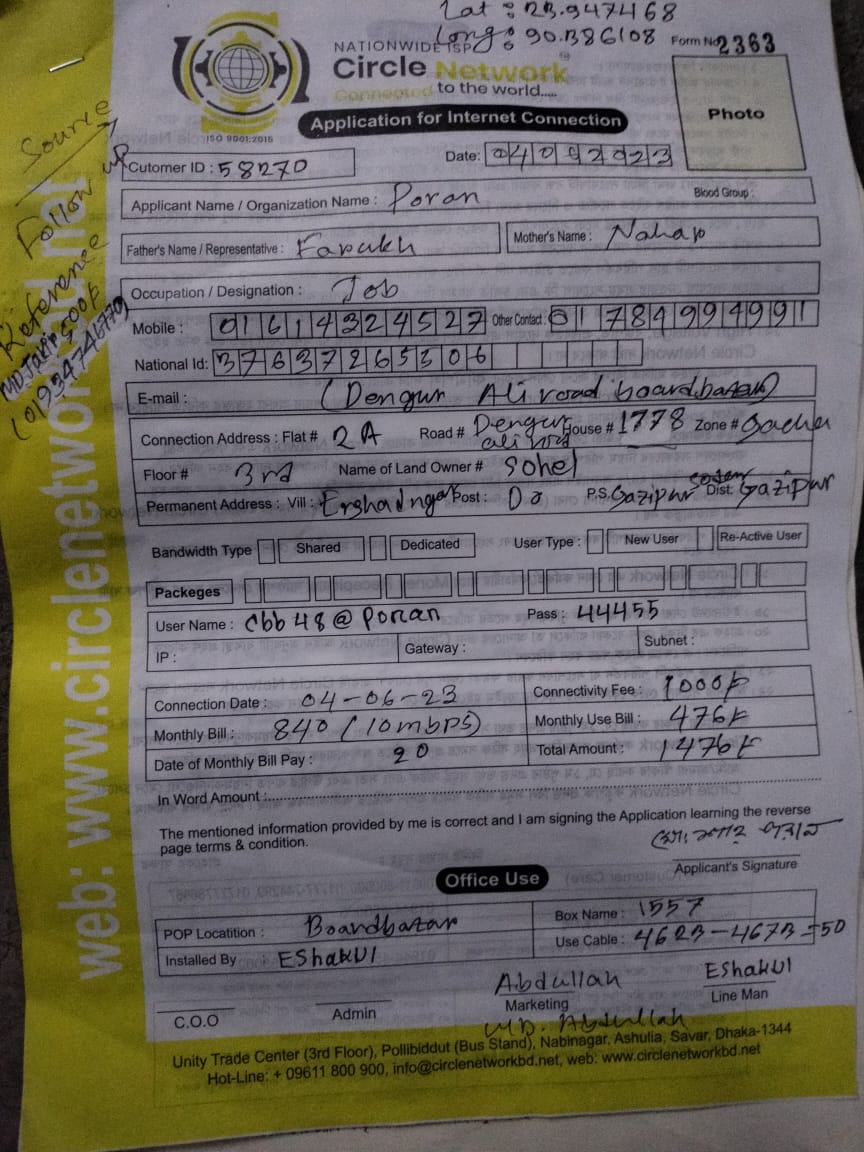 Lat : 23.947468
Long : 90.386108
NATIONWIDE ISP
Form No 2363
Circle Network
Connected to the world.....
ISO 9001:2015
Application for Internet Connection
Photo
Source
Follow up
Reference
MD Jakir 500৳
(01934746770)
web: www.circlenetwork.net
Cutomer ID : 58270
Date: 04092023
Applicant Name / Organization Name : Poran
Blood Group :
Father's Name / Representative : Farukh
Mother's Name : Nahar
Occupation / Designation : Job
Mobile : 01614324527 Other Contact : 01789499491
National Id: 3763726530 6
E-mail : (Dengur Ali road boardbazar)
Connection Address : Flat # 2A Road # Dengur ali rod House # 1778 Zone # Gacha
Floor # 3rd Name of Land Owner # Sohel
Permanent Address : Vill : Ershadngar Post : Do P.S. Gazipur Soder Dist: Gazipur
Bandwidth Type Shared Dedicated User Type : New User Re-Active User
Packeges
User Name : Cbb48@Poran Pass : 44455
IP : Gateway : Subnet :
Connection Date : 04-06-23 Connectivity Fee : 1000৳
Monthly Bill : 840 (10mbps) Monthly Use Bill : 476৳
Date of Monthly Bill Pay : 20 Total Amount : 1476৳
In Word Amount :
The mentioned information provided by me is correct and I am signing the Application learning the reverse
page terms & condition.
Applicant's Signature
Office Use
POP Locatition : Boardbazar Box Name : 1557
Installed By : EShakUl Use Cable : 4623-4673=50
C.O.O Admin Abdullah Marketing EShakUl Line Man
MD. Abdullah
Unity Trade Center (3rd Floor), Pollibiddut (Bus Stand), Nabinagar, Ashulia, Savar, Dhaka-1344
Hot-Line: + 09611 800 900, info@circlenetworkbd.net, web: www.circlenetworkbd.net